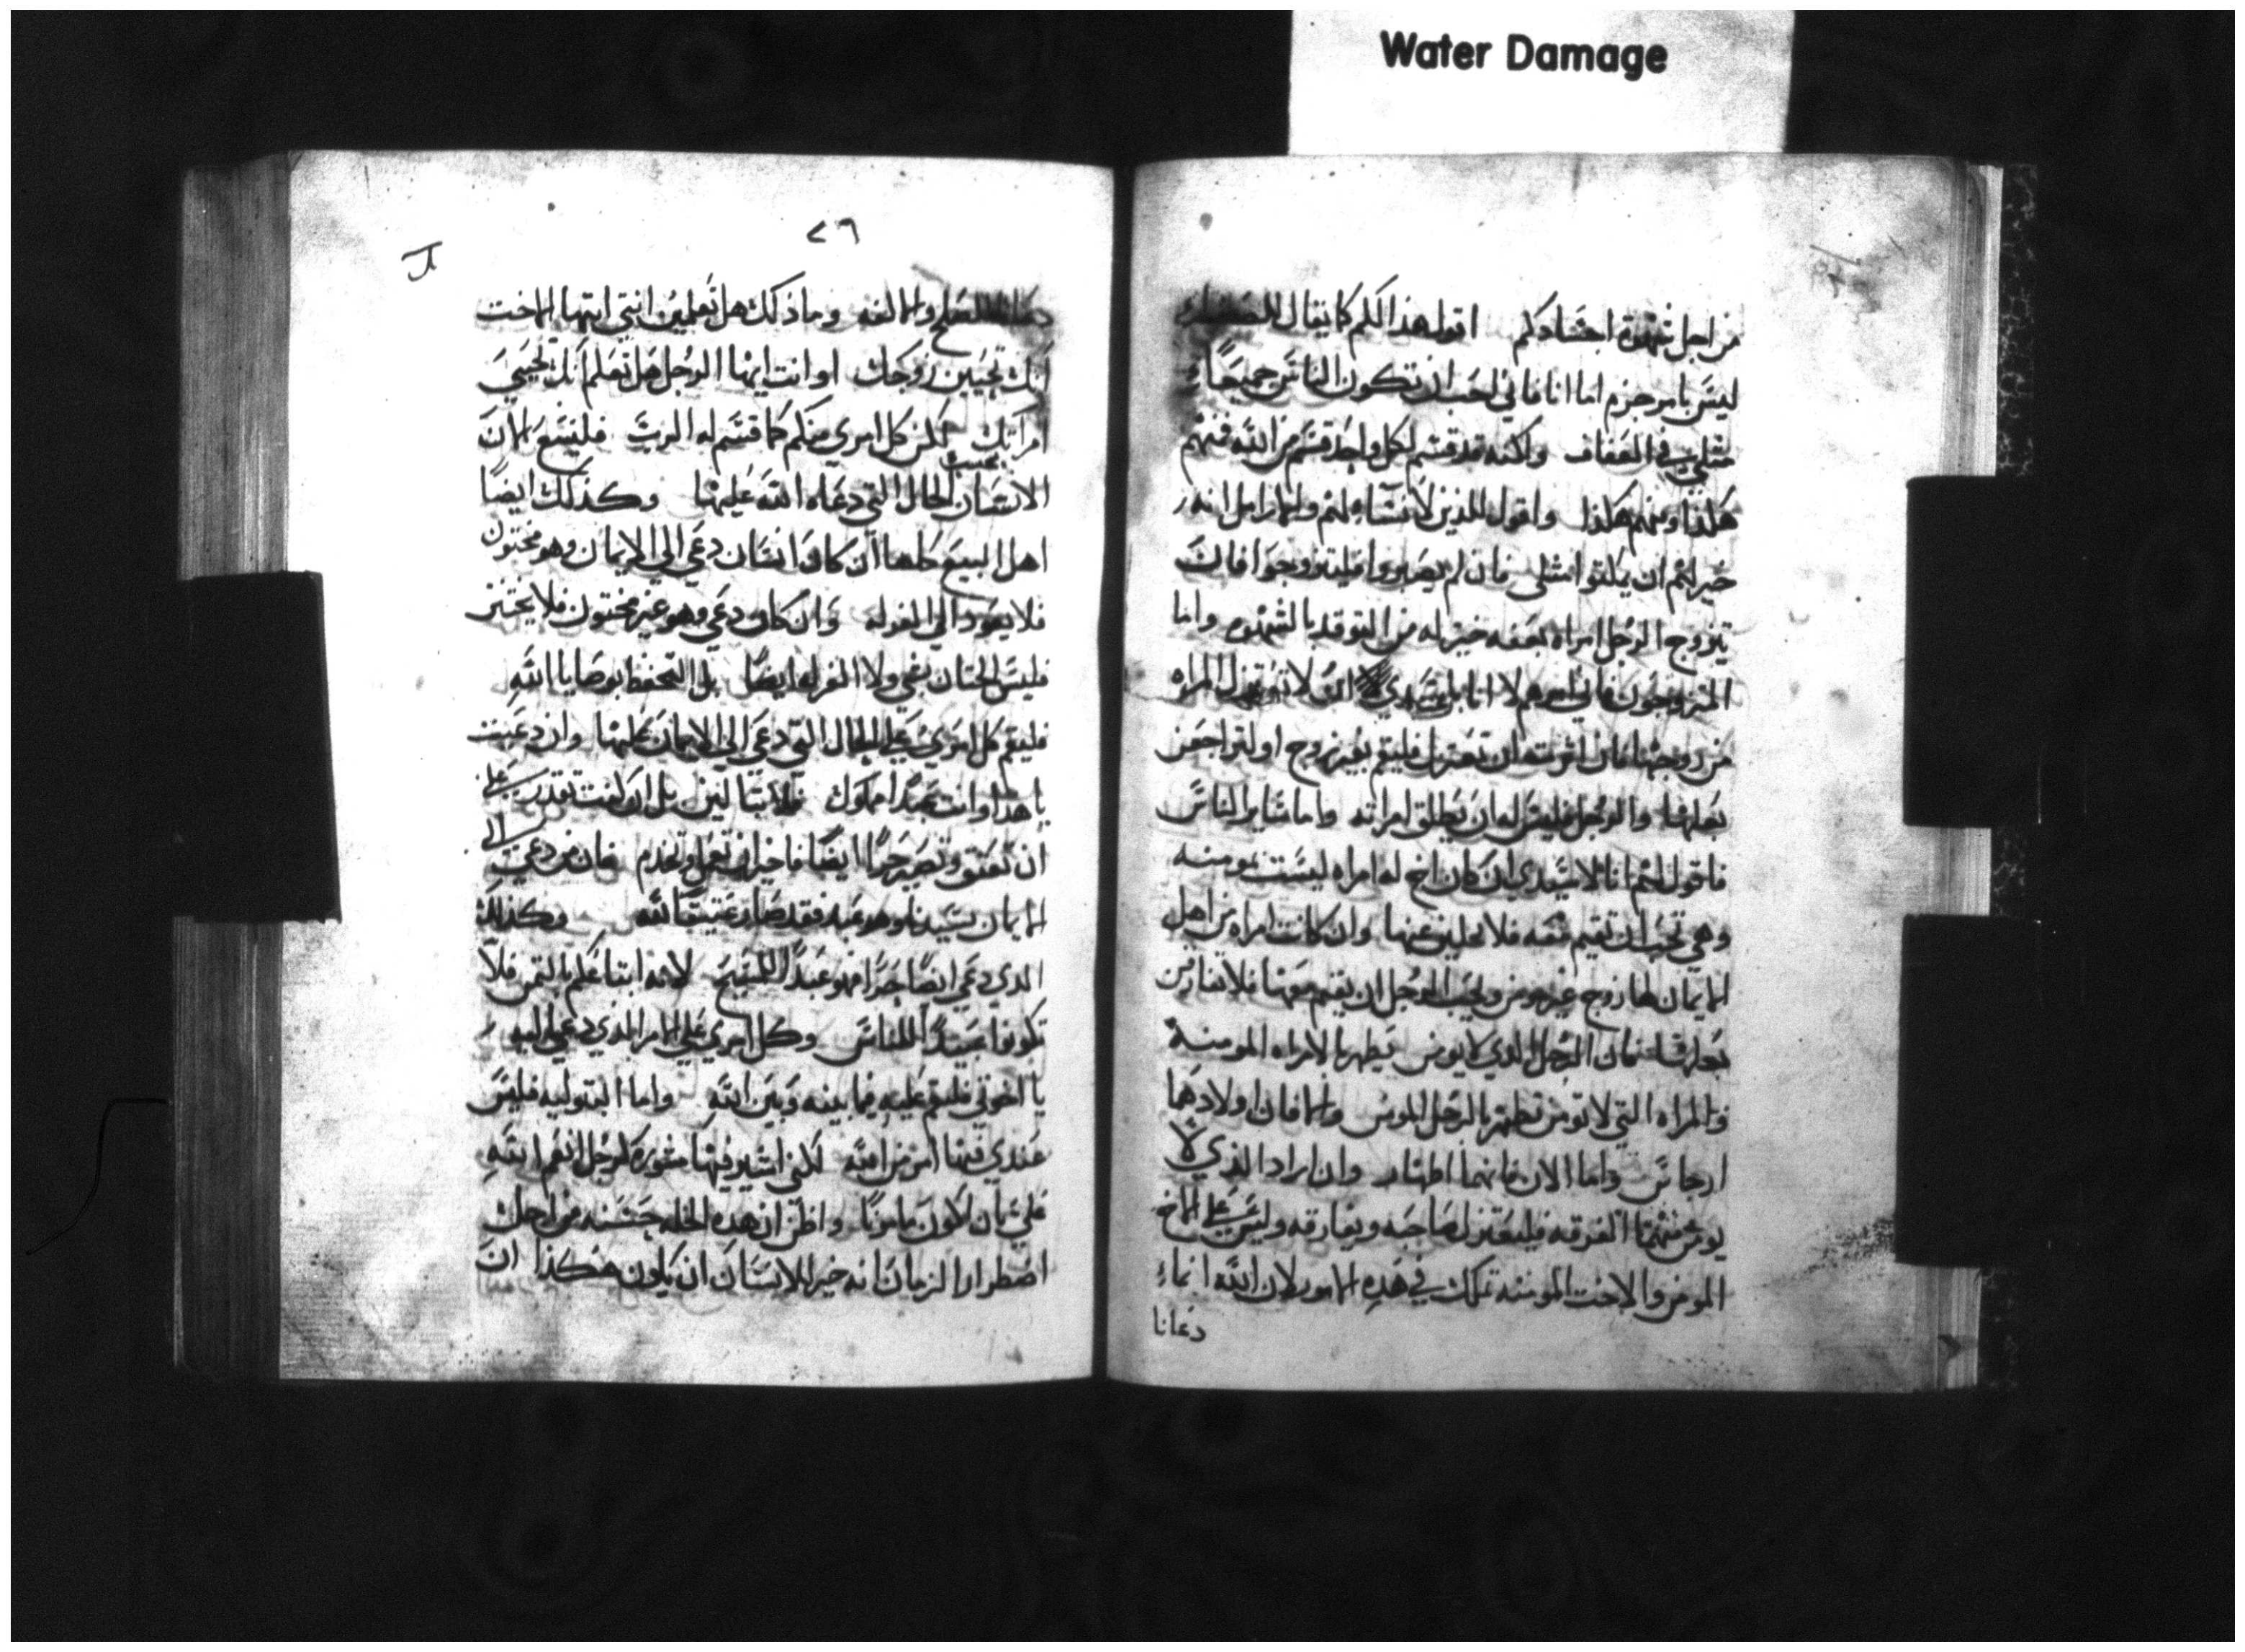 Water Damage
من اجل شهوة اجسادكم اقول هذا لكم كما يقال
ليس بامر جزم اما انا فاني احب ان تكون الناس جميعاء
مثلي في العفاف ولكنه قد قسم لكل واحد قسم من الله فمنهم
هكذا ومنهم هكذا واقول للذين لا نساء لهم والارامل انه
خير لهم ان يمكثوا مثلي فان لم يصبروا فليتزوجوا فان
تزوج الرجل امراه بعفه خير له من التوقد بالشهوه واما
المتزوجون فاني امرهم لا انا بل سيدي لا تعتزل المراه
من زوجها فان اثرت ان تعتزل فليقم بغير زوج او لتراجعن
بعلها والرجل فليس له ان يطلق امراته واما ساير الناس
فاقول لهم انا لا سيدي ان كان اخ له امراه ليست مومنه
وهي تحب ان تقيم معه فلا يخلين عنها وان كانت امراه من اهل
الايمان لها زوج غير مومن ويحب الرجل ان يقيم معها فلا تفارقن
بعلها فان الرجل الذي لا يومن يطهر بالامراه المومنة
والمراه التي لا تومن تطهر بالرجل المومن والا فان اولادهما
ارجاس واما الان فانهما اطهار وان اراد الذي لا
يومن منهما الفرقه فليعتزل صاحبه ويفارقه وليس على الاخ
المومن والاخت المومنه تملك في هذه الامور لان الله انماء
دعانا
٢٦
دعانا للصلح والالفه وما ذلك هل تعلمين انتي ايتها الاخت
انك تحيين زوجك او انت ايها الرجل هل تعلم انك تحيي
امراتك لكن كل امري منكم كما قسم له الرب فليسع الان
بحسب
الانسان الحال التي دعاه الله عليها وكذلك ايضا
اهل البيع كلها ان كان انسان دعي الي الايمان وهو مختون
فلا يعود الي الغرله وان كان دعي وهو غير مختون فلا يختتن
فليس الختان بشي ولا الغرله ايضا بل التحفظ بوصايا الله
فليقم كل امري علي الحال التي دعي الي الايمان عليها وان دعيت
يا هذا وانت عبدا مملوك فلا تبالين بل ان كنت تقدر علي
ان تعتق وتصير حرا ايضا فاختر ان تعمل وتخدم فان من دعي الي
الايمان بسيدنا وهو عبد فقد صار عتيقا لله وكذلك
الذي دعي ايضا حرا فهو عبدا للمسيح لانه ابتاعكم بالثمن فلا
تكونوا عبيدا للناس وكل امري علي الامر الذي دعي اليه
يا اخوتي فليقم عليه فيما بينه وبين الله واما البتوليه فليس
عندي فيها امر من الله لكني اشير فيها مشورة كرجل انعم الله
علي بان اكون مامونا واظن ان هذه الخله حسنه من اجل
اضطرار الزمان انه خير للانسان ان يكون هكذا ان